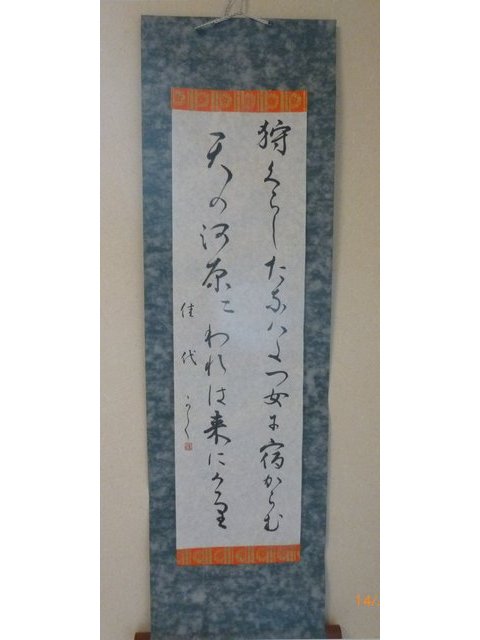 狩くらしたなハたつ女に宿からむ
天の河原にわれは来にけり
佳代 かく
14